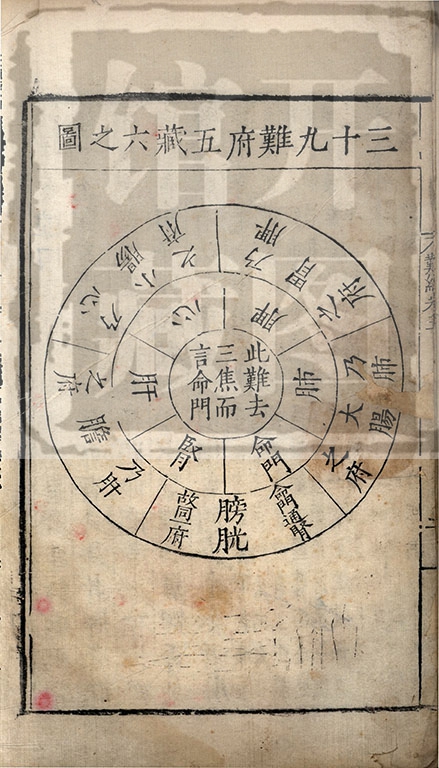 三十九難府五藏六之圖
此難去
三焦而
言命門
心
脾
肺
命門
腎
肝
脾乃
胃
之府
肺乃
大腸
之府
命門通腎
膀胱
腎同府
乃肝
膽
之府
乃心
小腸
之府
开
图
馆